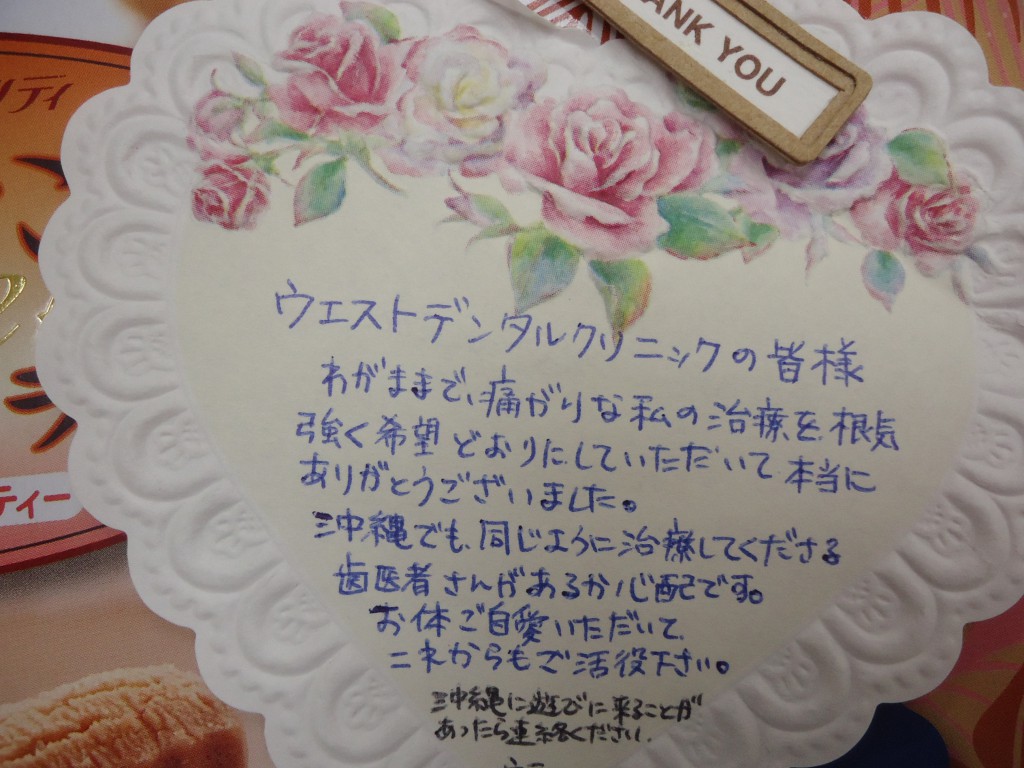 THANK YOU
ウエストデンタルクリニックの皆様
わがままで、痛がりな私の治療を根気
強く希望どおりにしていただいて本当に
ありがとうございました。
沖縄でも、同じように治療してくださる
歯医者さんがあるか心配です。
お体ご自愛いただいて、
これからもご活役下さい。
沖縄に遊びに来ることが
あったら連絡ください。
ティ
ティー